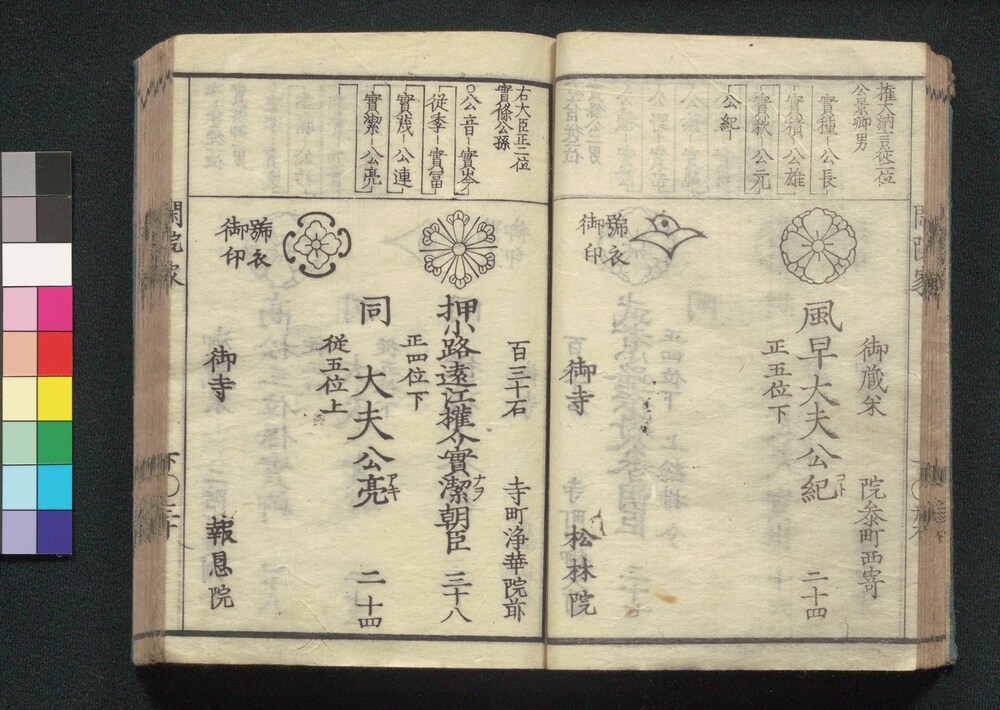 権大納言従一位
公景卿男
實種－公長
實積－公雄
實秋 公元
公紀
御蔵米 院参町西寄
風早大夫公紀コト 二十四
正五位下
號衣
御印
御寺 松林院
右大臣正二位
實條公孫
○公音－實岑
従季－實富
實茂 公連
實潔－公亮
百三十石 寺町浄華院前
押小路遠江権介實潔ナヲ朝臣 三十八
正四位下
同 大夫公亮アキ 二十四
従五位上
號衣
御印
御寺 報恩院
閑院家
下○三十